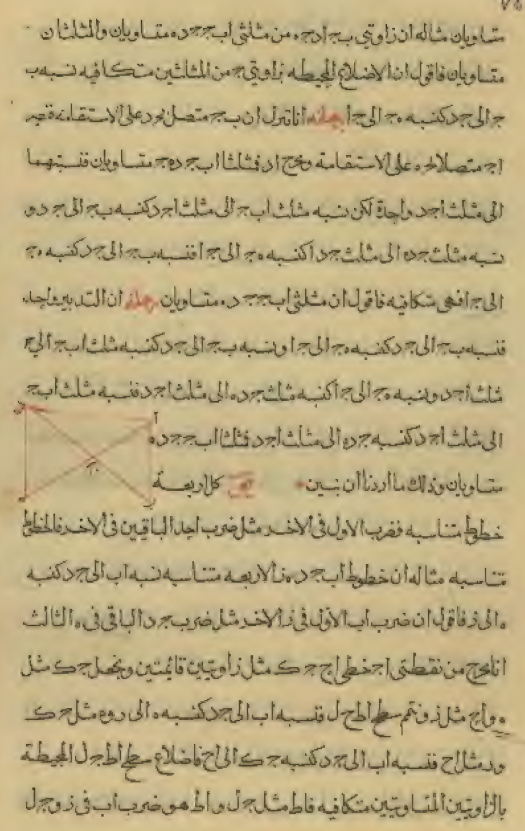 متساويان مثاله ان زاويتي ب ج ا د ج ه من مثلثي ا ب ج ج د ه متساويان والمثلثان
متساويان فاقول ان الاضلاع المحيطه بزاويتي ج من المثلثين متكافيه نسبه ب
ج الى ج د كنسبه ه ج الى ج ا برهانه انا نترل ان ب ج متصل بـ ج د على الاستقامه فيصير
ا ج متصلا بـ ج ه على الاستقامة ونخرج ا د فمثلثا ا ب ج د ه ج متساويان فنسبتهما
الى مثلث ا ج د واحدة لكن نسبه مثلث ا ب ج الى مثلث ا ج د كنسبه ب ج الى ج د و
نسبه مثلث ج د ه الى مثلث ج د ا كنسبه ه ج الى ج ا فنسبه ب ج الى ج د كنسبه ه ج
الى ج ا فهي متكافيه فاقول ان مثلثي ا ب ج ج د ه متساويان برهانه ان التدبير واحد
فنسبه ب ج الى ج د كنسبه ه ج الى ج ا ونسبه ب ج الى ج د كنسبه مثلث ا ب ج الى
مثلث ا ج د ونسبه ه ج الى ج ا كنسبه مثلث ج د ه الى مثلث ا ج د فنسبه مثلث ا ب ج
الى مثلث ا ج د كنسبه ج د ه الى مثلث ا ج د فمثلثا ا ب ج ج د ه
متساويان وذلك ما اردنا ان نبين كل اربعة
خطوط متناسبه فضرب الاول في الاخر مثل ضرب احد الباقيين في الاخر فالخطوط
متناسبه مثاله ان خطوط ا ب ج د ه ز الاربعه متناسبه نسبه ا ب الى ج د كنسبه
ه الى ز فاقول ان ضرب ا ب الاول في ز الاخر مثل ضرب ج د الباقي في ه الثالث
انا نخرج من نقطتي ا ج خطي ا ح ج ك مثل زاويتين قائمتين ونجعل ج ك مثل
ه و ا ح مثل ز ونتم سطح ا ط ج ل فنسبه ا ب الى ج د كنسبه ه الى ز و ه مثل ج ك
و ز مثل ا ح فنسبه ا ب الى ج د كنسبه ج ك الى ا ح فاضلاع سطح ا ط ج ل المحيطة
بالزاويتين المتساويتين متكافيه فا ط مثل ج ل و ا ط هو ضرب ا ب في ز و ج ل